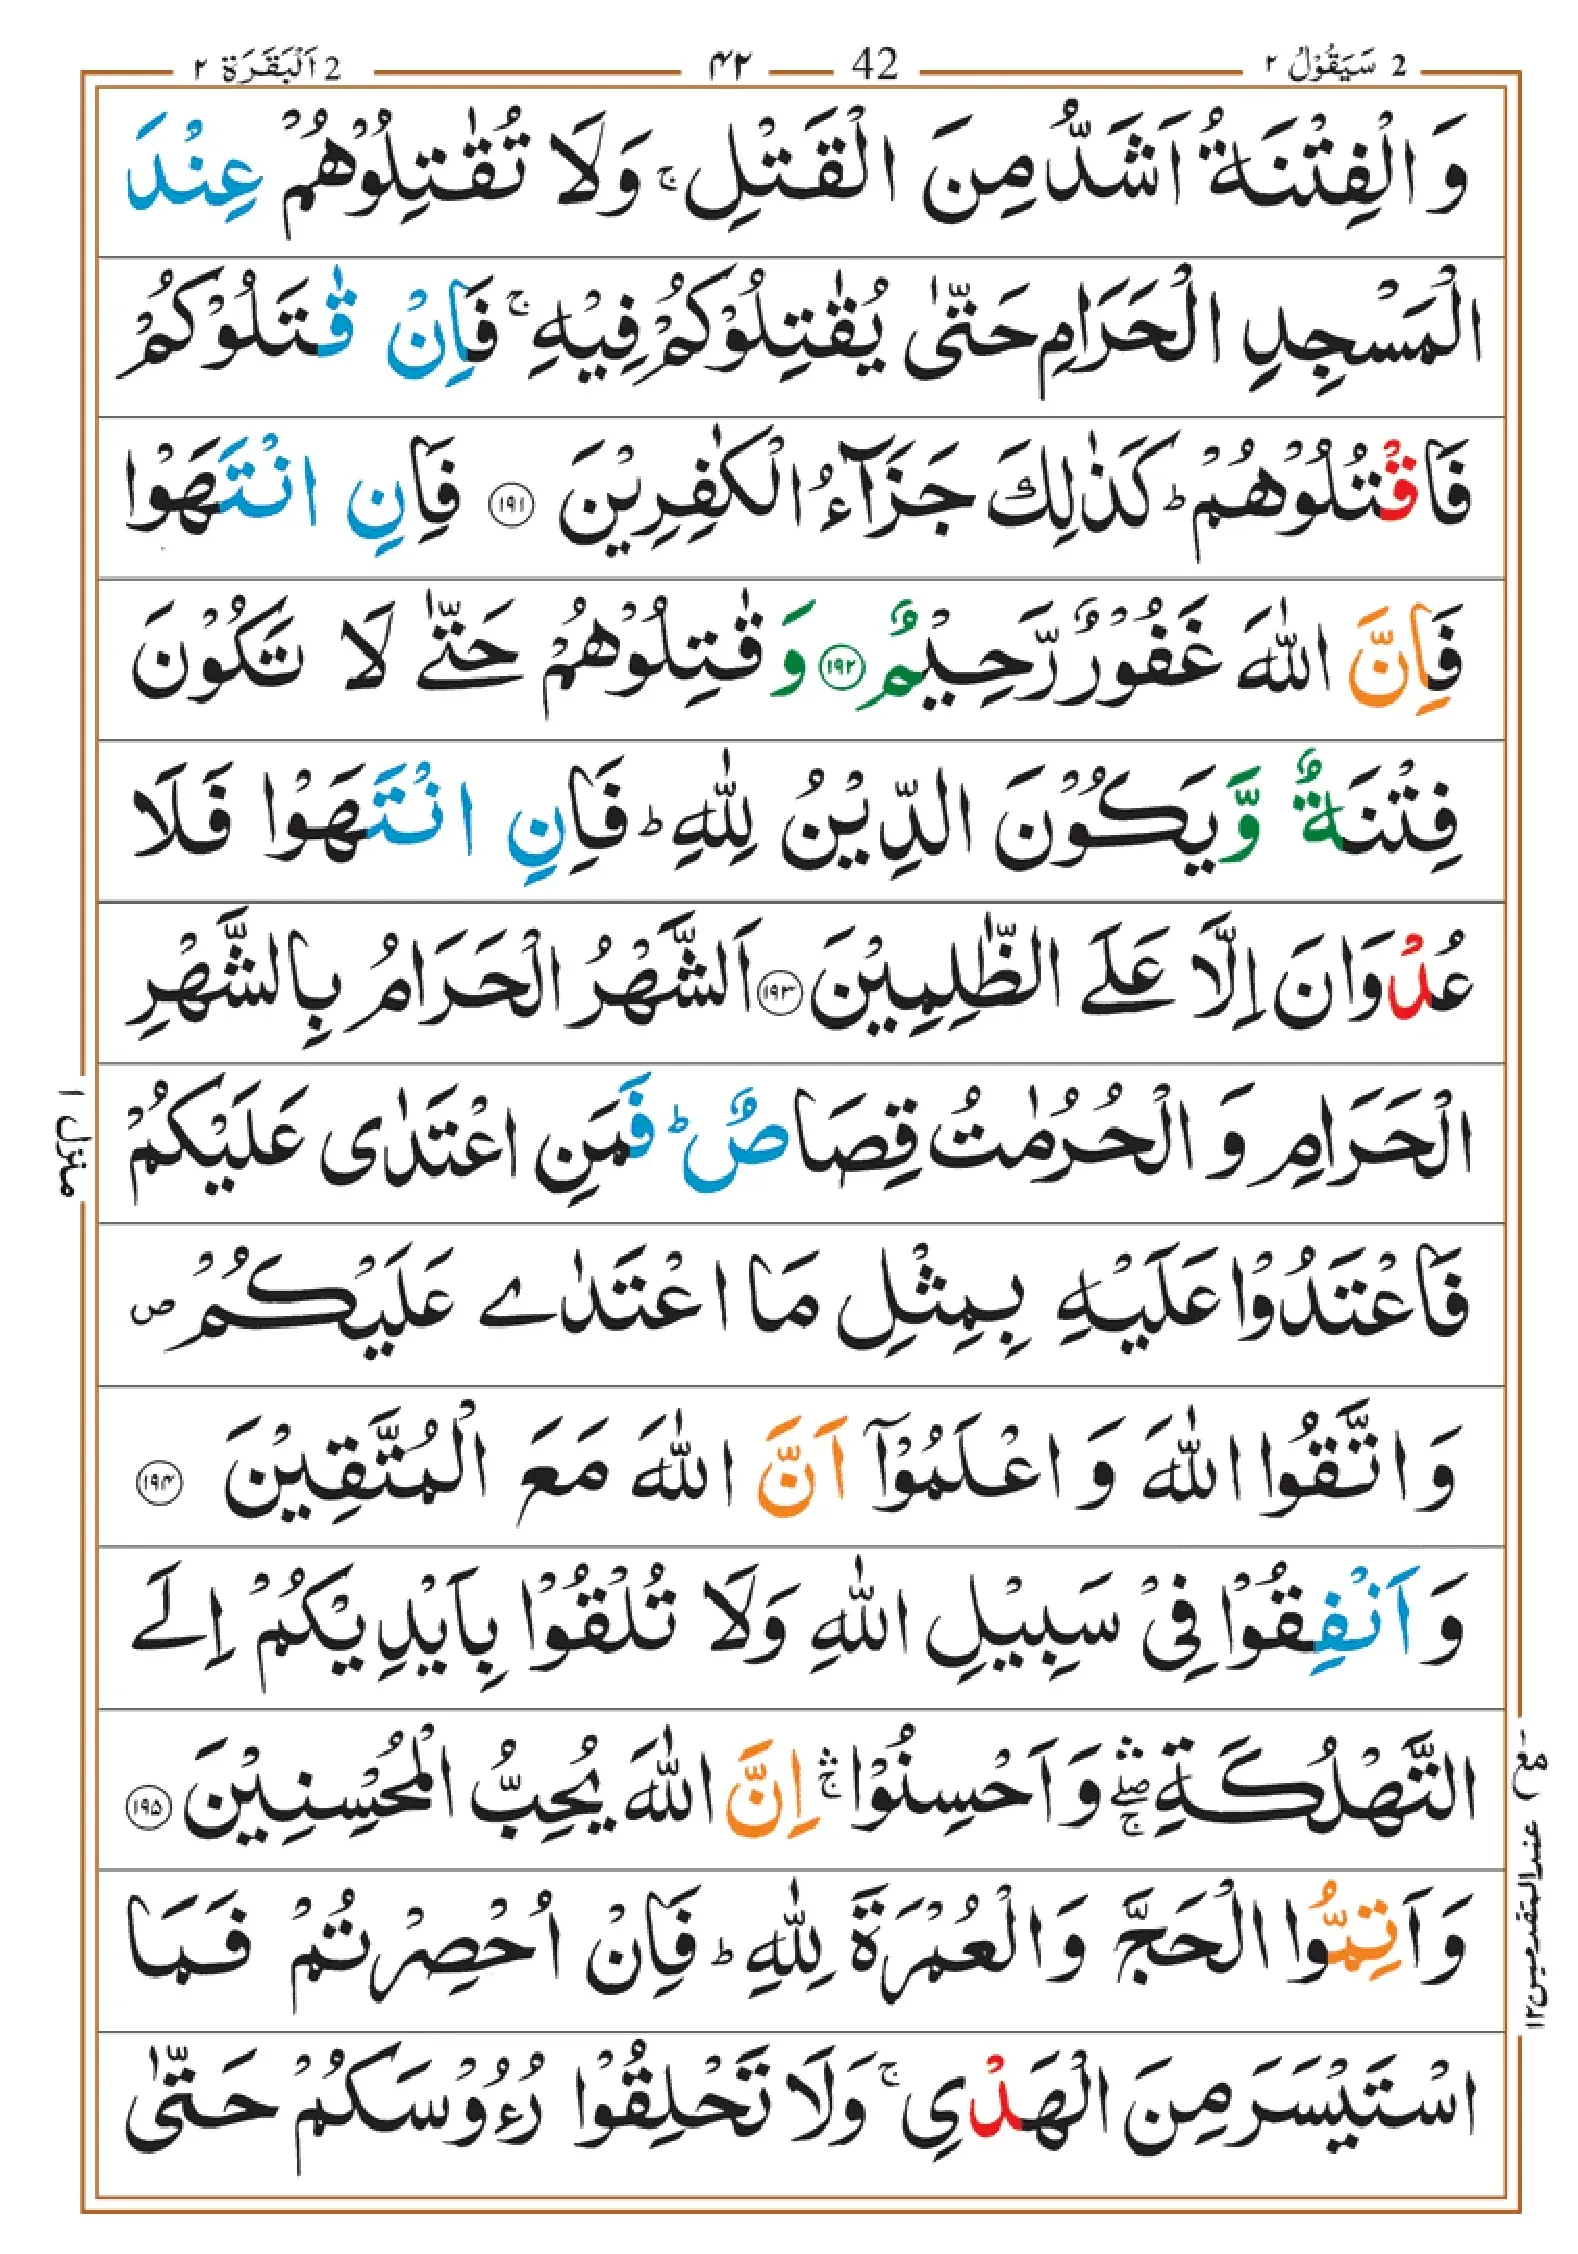 2 سَيَقُوْلُ ٢ 42 ۴۲ 2 اَلْبَقَرَة ٢
وَالْفِتْنَةُ اَشَدُّ مِنَ الْقَتْلِ ۚ وَلَا تُقٰتِلُوْهُمْ عِنْدَ
الْمَسْجِدِ الْحَرَامِ حَتّٰى يُقٰتِلُوْكُمْ فِيْهِ ۚ فَاِنْ قٰتَلُوْكُمْ
فَاقْتُلُوْهُمْ ؕ كَذٰلِكَ جَزَآءُ الْكٰفِرِيْنَ ﴿۱۹۱﴾ فَاِنِ انْتَهَوْا
فَاِنَّ اللّٰهَ غَفُوْرٌ رَّحِيْمٌ ﴿۱۹۲﴾ وَقٰتِلُوْهُمْ حَتّٰى لَا تَكُوْنَ
فِتْنَةٌ وَّيَكُوْنَ الدِّيْنُ لِلّٰهِ ؕ فَاِنِ انْتَهَوْا فَلَا
عُدْوَانَ اِلَّا عَلَے الظّٰلِمِيْنَ ﴿۱۹۳﴾ اَلشَّهْرُ الْحَرَامُ بِالشَّهْرِ
الْحَرَامِ وَالْحُرُمٰتُ قِصَاصٌ ؕ فَمَنِ اعْتَدٰى عَلَيْكُمْ
فَاعْتَدُوْا عَلَيْهِ بِمِثْلِ مَا اعْتَدٰے عَلَيْكُمْ ص
وَاتَّقُوا اللّٰهَ وَاعْلَمُوْٓا اَنَّ اللّٰهَ مَعَ الْمُتَّقِيْنَ ﴿۱۹۴﴾
وَاَنْفِقُوْا فِىْ سَبِيْلِ اللّٰهِ وَلَا تُلْقُوْا بِاَيْدِيْكُمْ اِلَے
التَّهْلُكَةِ ۛۖۚ وَاَحْسِنُوْا ۛۚ اِنَّ اللّٰهَ يُحِبُّ الْمُحْسِنِيْنَ ﴿۱۹۵﴾
وَاَتِمُّوا الْحَجَّ وَالْعُمْرَةَ لِلّٰهِ ؕ فَاِنْ اُحْصِرْتُمْ فَمَا
اسْتَيْسَرَ مِنَ الْهَدْىِ ۚ وَلَا تَحْلِقُوْا رُءُوْسَكُمْ حَتّٰى
منزل ۱
مع عند المتقدمین ۱۲